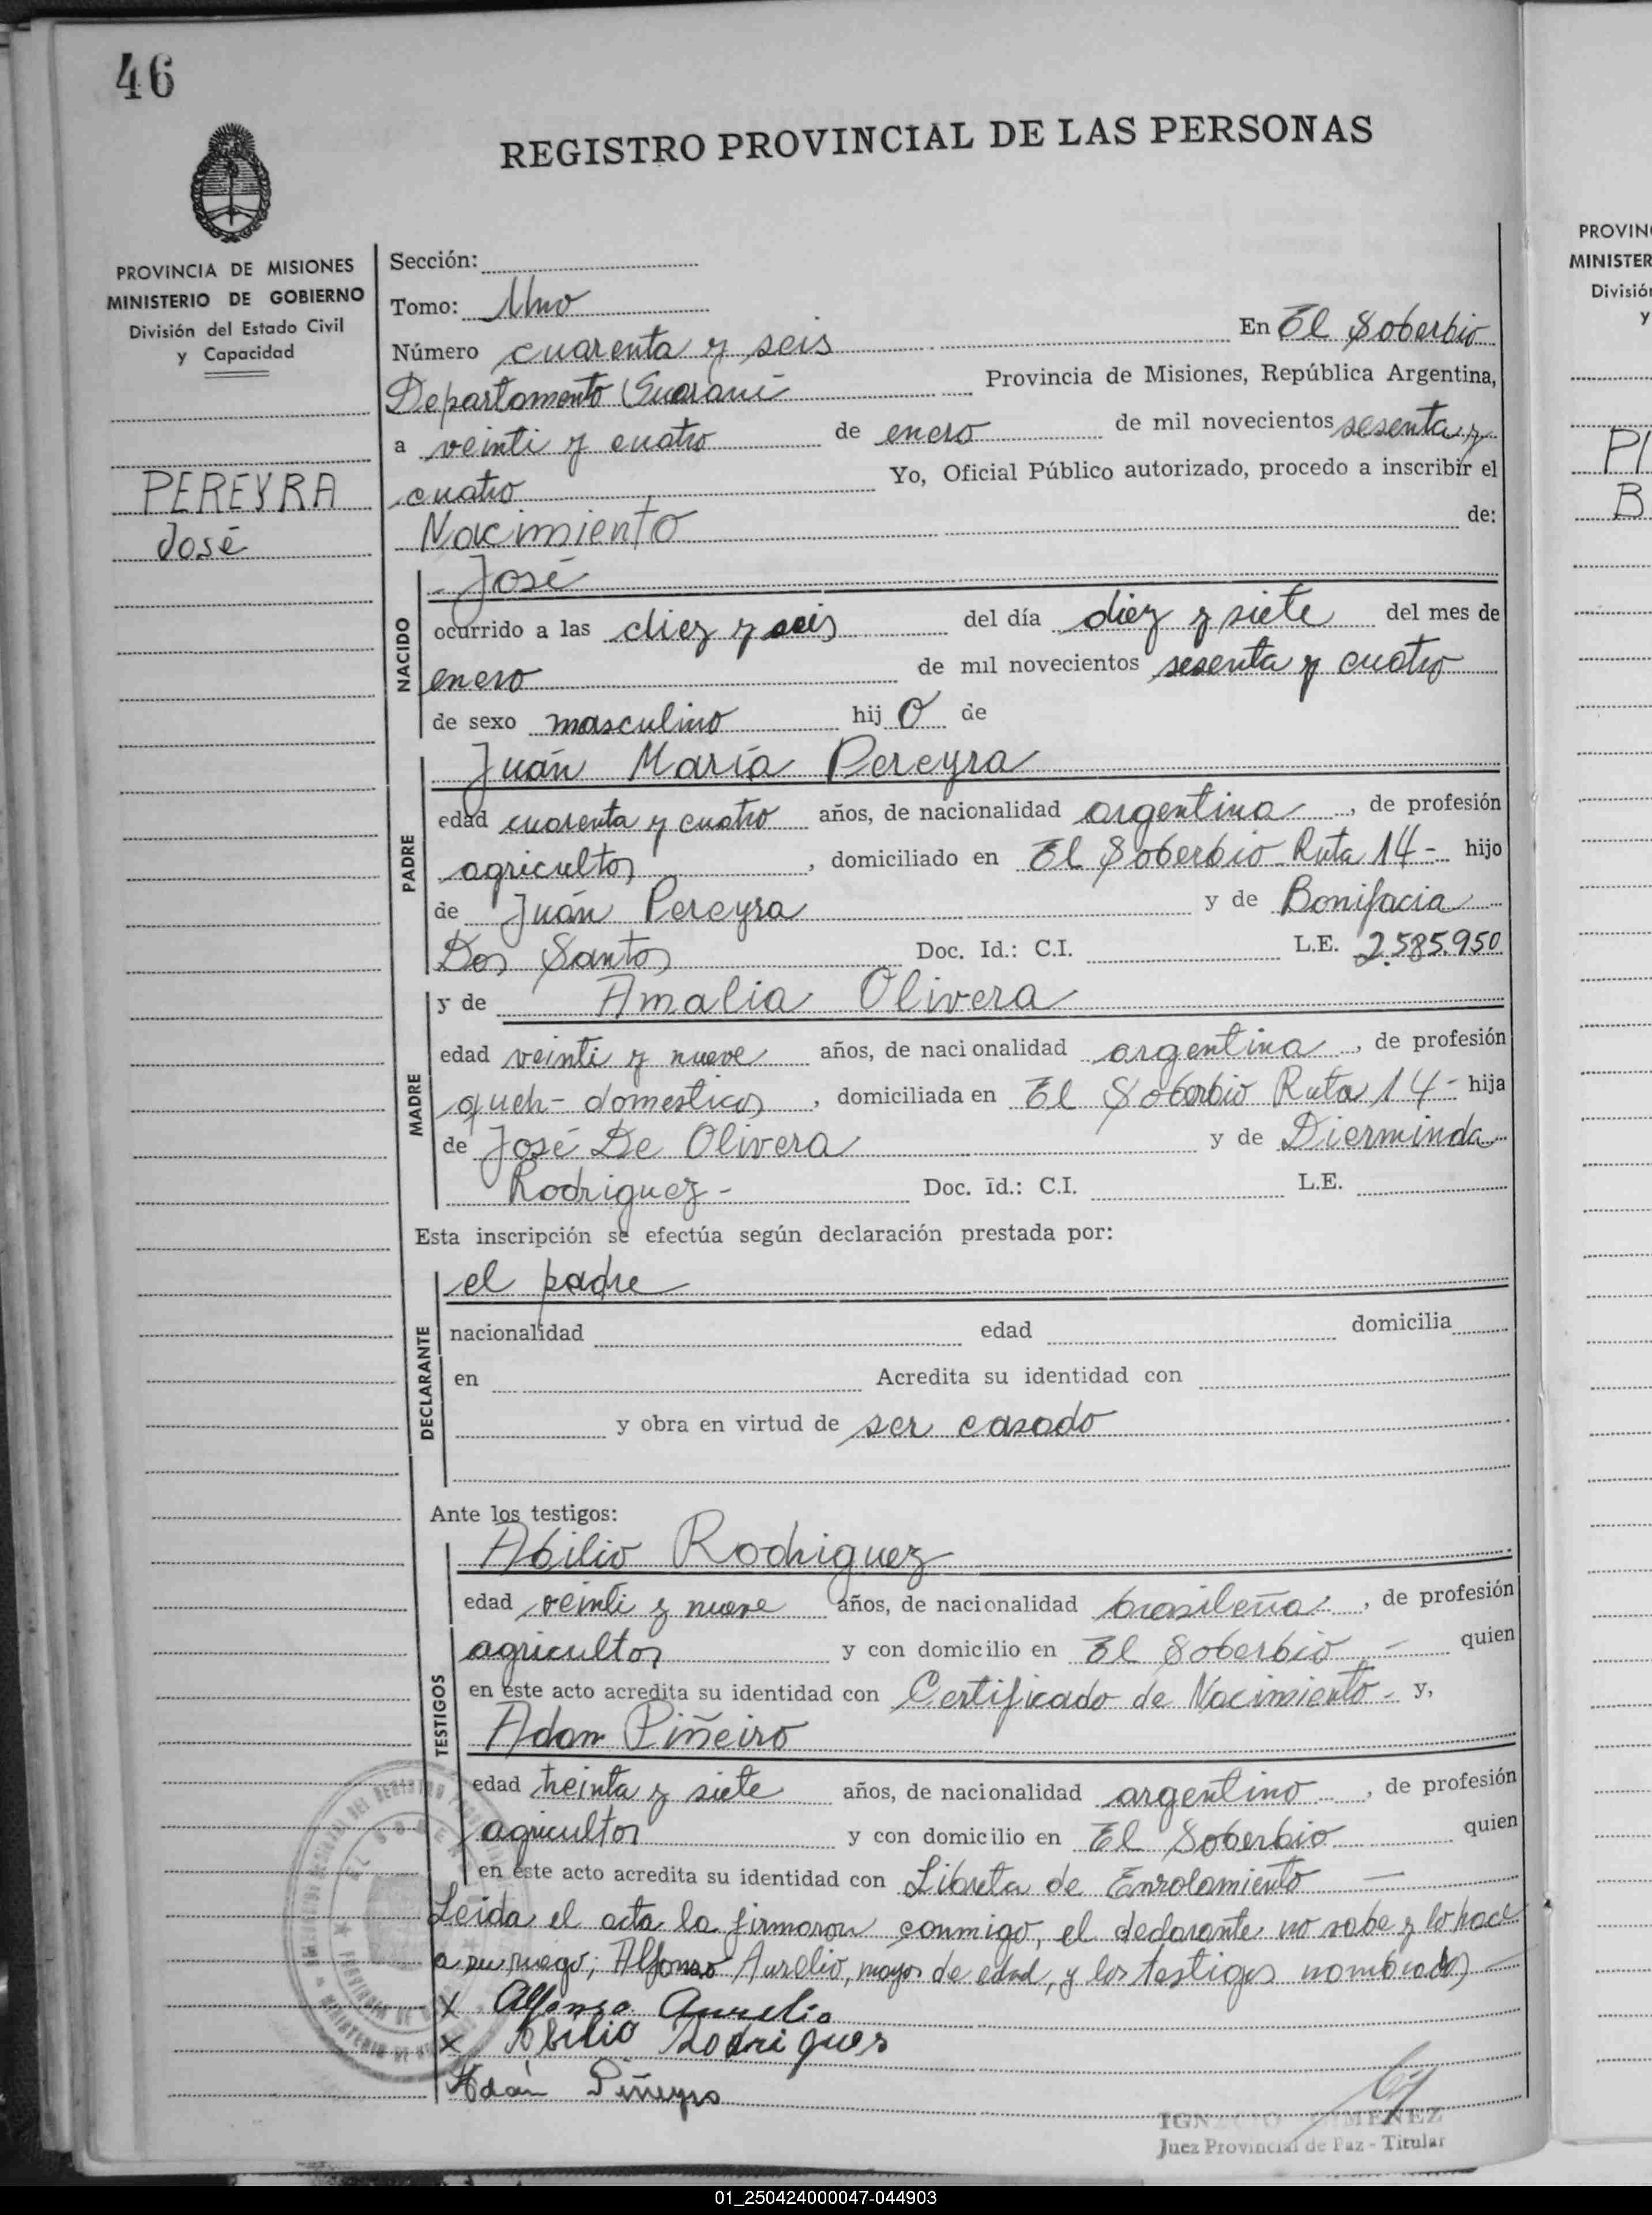 46
REGISTRO PROVINCIAL DE LAS PERSONAS
PROVINCIA DE MISIONES
MINISTERIO DE GOBIERNO
División del Estado Civil
y Capacidad
PEREYRA
José
Sección:
Tomo: Uno
Número cuarenta y seis En El Soberbio
Departamento Guaraní Provincia de Misiones, República Argentina,
a veinti y cuatro de enero de mil novecientos sesenta y
cuatro Yo, Oficial Público autorizado, procedo a inscribir el
Nacimiento de:
NACIDO
José
ocurrido a las diez y seis del día diez y siete del mes de
enero de mil novecientos sesenta y cuatro
de sexo masculino hij o de
PADRE
Juán María Pereyra
edad cuarenta y cuatro años, de nacionalidad argentina, de profesión
agricultor, domiciliado en El Soberbio Ruta 14- hijo
de Juán Pereyra y de Bonifacia
Dos Santos Doc. Id.: C.I. L.E. 2.585.950
MADRE
y de Amalia Olivera
edad veinti y nueve años, de nacionalidad argentina, de profesión
queh- domesticos, domiciliada en El Soberbio Ruta 14- hija
de José De Olivera y de Dierminda
Rodriguez- Doc. Id.: C.I. L.E.
Esta inscripción se efectúa según declaración prestada por:
DECLARANTE
el padre
nacionalidad edad domicilia
en Acredita su identidad con
y obra en virtud de ser casado
Ante los testigos:
TESTIGOS
Abilio Rodriguez
edad veinti y nueve años, de nacionalidad brasileña, de profesión
agricultor y con domicilio en El Soberbio - quien
en este acto acredita su identidad con Certificado de Nacimiento - y,
Adam Piñeiro
edad treinta y siete años, de nacionalidad argentino, de profesión
agricultor y con domicilio en El Soberbio quien
en este acto acredita su identidad con Libreta de Enrolamiento -
Leida el acta la firmaron conmigo, el declarante no sabe y lo hace
a su ruego; Alfonso Aurelio, mayor de edad, y los testigos nombrados -
x Alfonso Aurelio
x Abilio Rodrigues
Adán Piñeyro
IGNACIO GIMENEZ
Juez Provincial de Paz - Titular
PROVIN
MINISTER
Divisió
y
PI
B
01_250424000047-044903